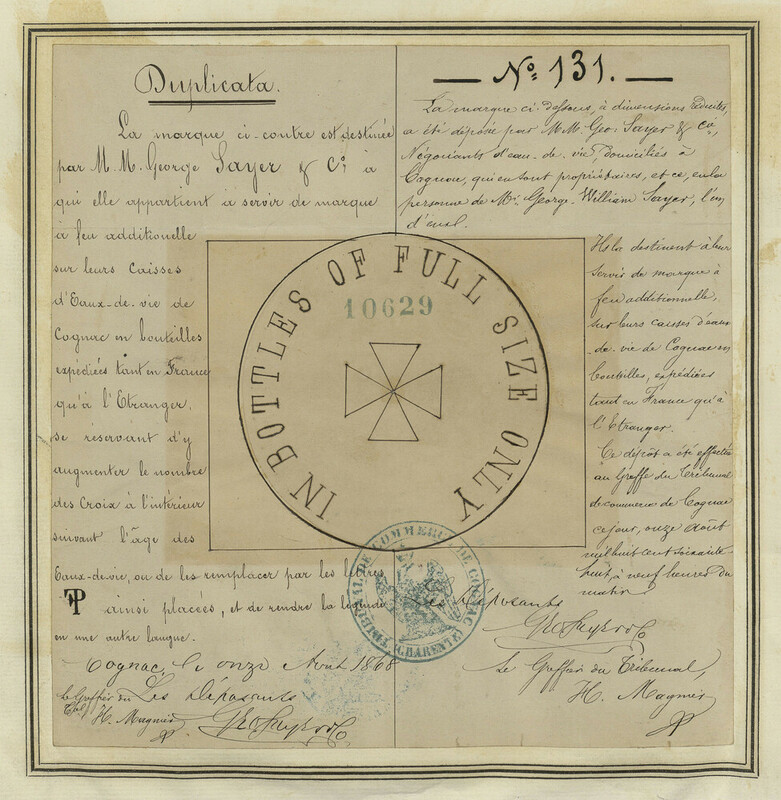 Duplicata.
La marque ci-contre est destinée
par M.M. George Sayer & Cie, a
qui elle appartient à servir de marque
à feu additionelle
sur leurs Caisses
d'Eaux-de-vie de
Cognac en bouteilles
expédiées tant en France
qu'à l'Etranger,
se réservant d'y
augmenter le nombre
des Croix à l'intérieur
suivant l'âge des
Eaux-de-vie, ou de les remplacer par les lettres
ainsi placées, et de rendre la légende
en une autre langue.
Cognac, le onze Août 1868
Les Déposants
le Greffier du
Tbal
H. Magnier
Geo Sayer & Co
No. 131.
La marque ci-dessous, à dimensions réduites,
a été déposée par M.M. Geo. Sayer & Cie,
Négociants d'eau-de-vie, domiciliés à
Cognac, qui en sont propriétaires, et ce, en la
personne de Mr. George-William Sayer, l'un
d'eux.
Ils la destinent à leur
servir de marque à
feu additionnelle,
sur leurs caisses d'eaux
de-vie de Cognac en
bouteilles, expédiées
tant en France qu'à
l'Etranger.
Ce dépôt a été effectué
au Greffe du Tribunal
de commerce de Cognac
ce jour, onze Août
mil huit cent soixante-
huit, à neuf heures du
matin
Les Déposants
Geo Sayer & Co
Le Greffier du Tribunal,
H. Magnier
IN BOTTLES OF FULL SIZE ONLY
10629
TRIBUNAL DE COMMERCE DE COGNAC
(CHARENTE)